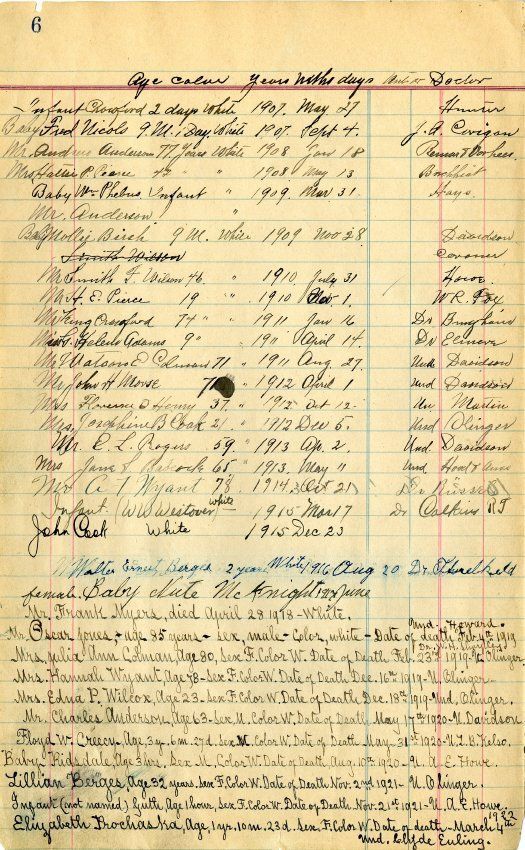 6
Age Color Years Mths days Doctor
Infant Crowford 2 days White 1907. May 27 Hunter
Baby Fred Nicols 9 M. 1 Day. White 1907. Sept 4. J. A. Corrigan
Mr. Andrew Anderson 77 Years White 1908 Jan 18
Mrs Hallie P. " " 1908 May 13
Baby Wm Phebus. Infant " 1909. Mar 31. Hays.
Mr. Anderson "
Baby Molly Birsh 9 M. White 1909 Nov 28 Davidson
Smith Wilson Coroner
Mr Smith F. Wilson 46. " 1910 July 31 Howe.
Mr H. E. Pierce 19 " " 1910 Nov 1. W R. Fox
Mr King Crawford 74 " " 1911 Jan 16 Dr Bingham
Miss Helene Adams 9 " 1911 April 14. Dr
Mr Watson E. Colman 71 " 1911 Aug 27. Und Davidson
Mr John H Morse 71 1912 April 1 Und Davidson
Mrs Florence D Henry 37. " 1912 Oct 12. Un Martin
Mrs. Josephine B Cook 21. " 1912 Dec 5. Und Olinger
Mr. E. L. Rogers 59. " 1913 Apr. 2. Und. Davidson
Mrs Jane S. 65 " 1913. May 11 Und.
Mr A. T Wyant 73 " 1914 Oct 21 Dr Russell
Infant (W W Westover) White 1915 Mar 17 Dr Calkins R F
John Cook White 1915 Dec 23
Walter Ernest Berges 2 years White 1916 Aug 20 Dr. Threlkeld
female. Baby Nute McKnight June
Mr. Frank Myers, died April 28 1918 - White.
Und. Howard.
Mr. Oscar Jones, - age 85 years - Sex, male - Color, white - Date of death, Feb. 1st 1919
Mrs. Julia Ann Colman, Age 80, Sex F. Color W. Date of Death Feb. 23rd 1919 - U. Olinger.
Mrs. Hannah Wyant, Age 78 - Sex F. Color W. Date of Death Dec. 16th 1919 - U. Olinger -
Mrs. Edna P. Wilcox, Age 23 - Sex F. Color W. Date of Death Dec. 18th 1919 - Und. Olinger.
Mr. Charles Anderson, Age 63 - Sex M. Color W. Date of Death, May 17th 1920 - U. Davidson
Floyd W. Creecy - Age, 3 y. 6 m. 27 d. Sex M. Color W. Date of Death - May 31st 1920 - U. L. B. Kelso.
Baby Tridsdale, Age 3 hrs, Sex M. Color W. Date of Death Aug. 10th 1920 - U. A. E. Howe.
Lillian Berges, Age 32 years. Sex F. Color W. Date of Death Nov. 2nd 1921 - U. Olinger.
Infant (not named) Guth, Age 1 hour, Sex F. Color W. Date of Death, Nov. 21st 1921 - U. A. E. Howe.
Elizabeth Prochaska, Age, 1 yr. 10 m. 23 d. Sex F. Color W. Date of death - March 4th 1922
Und. Clyde Euling.